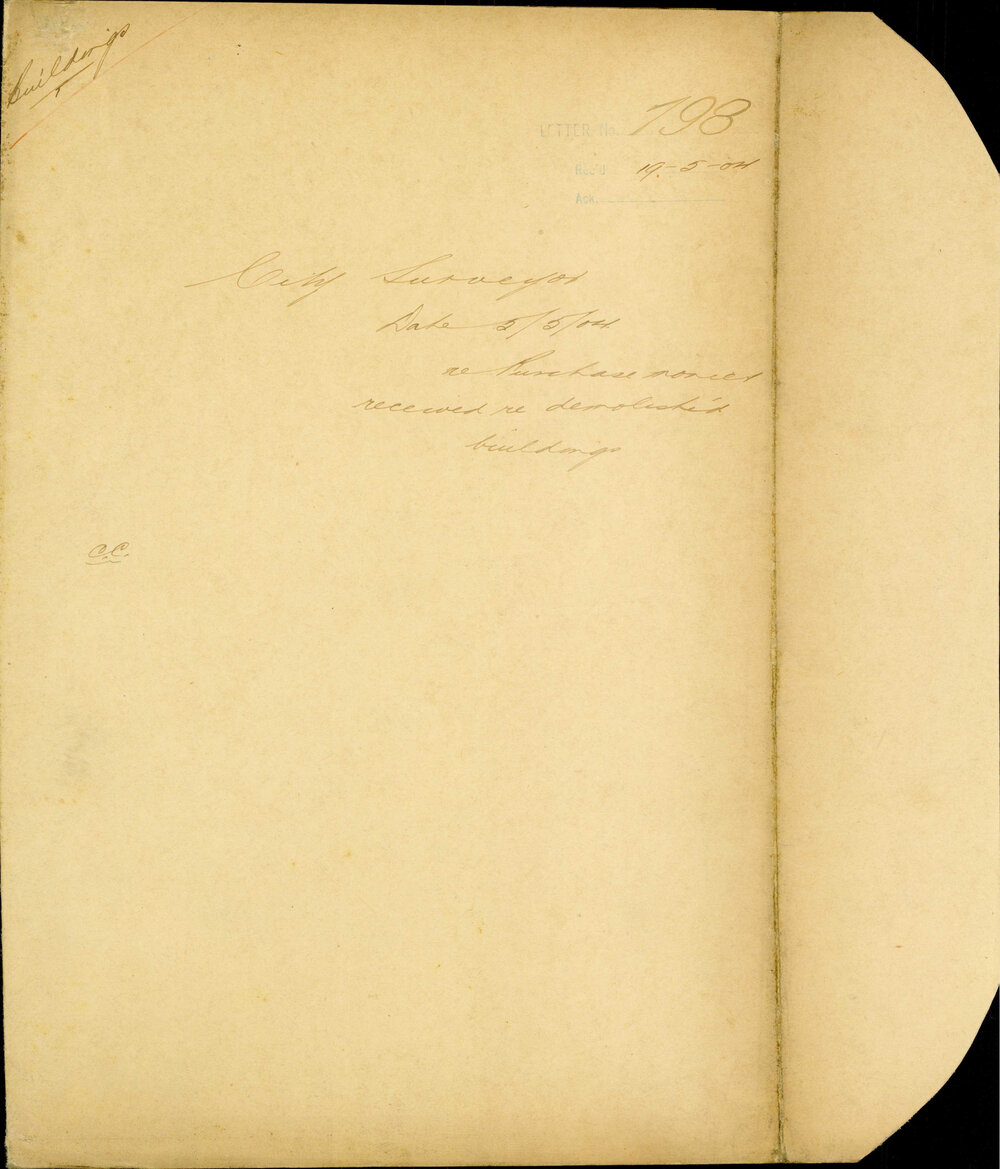 Buildings
LETTER No. 798
Rec'd 19-5-04
Ack.
City Surveyor
Date 5/5/04
re Purchase monies
received re demolished
buildings
C.C.